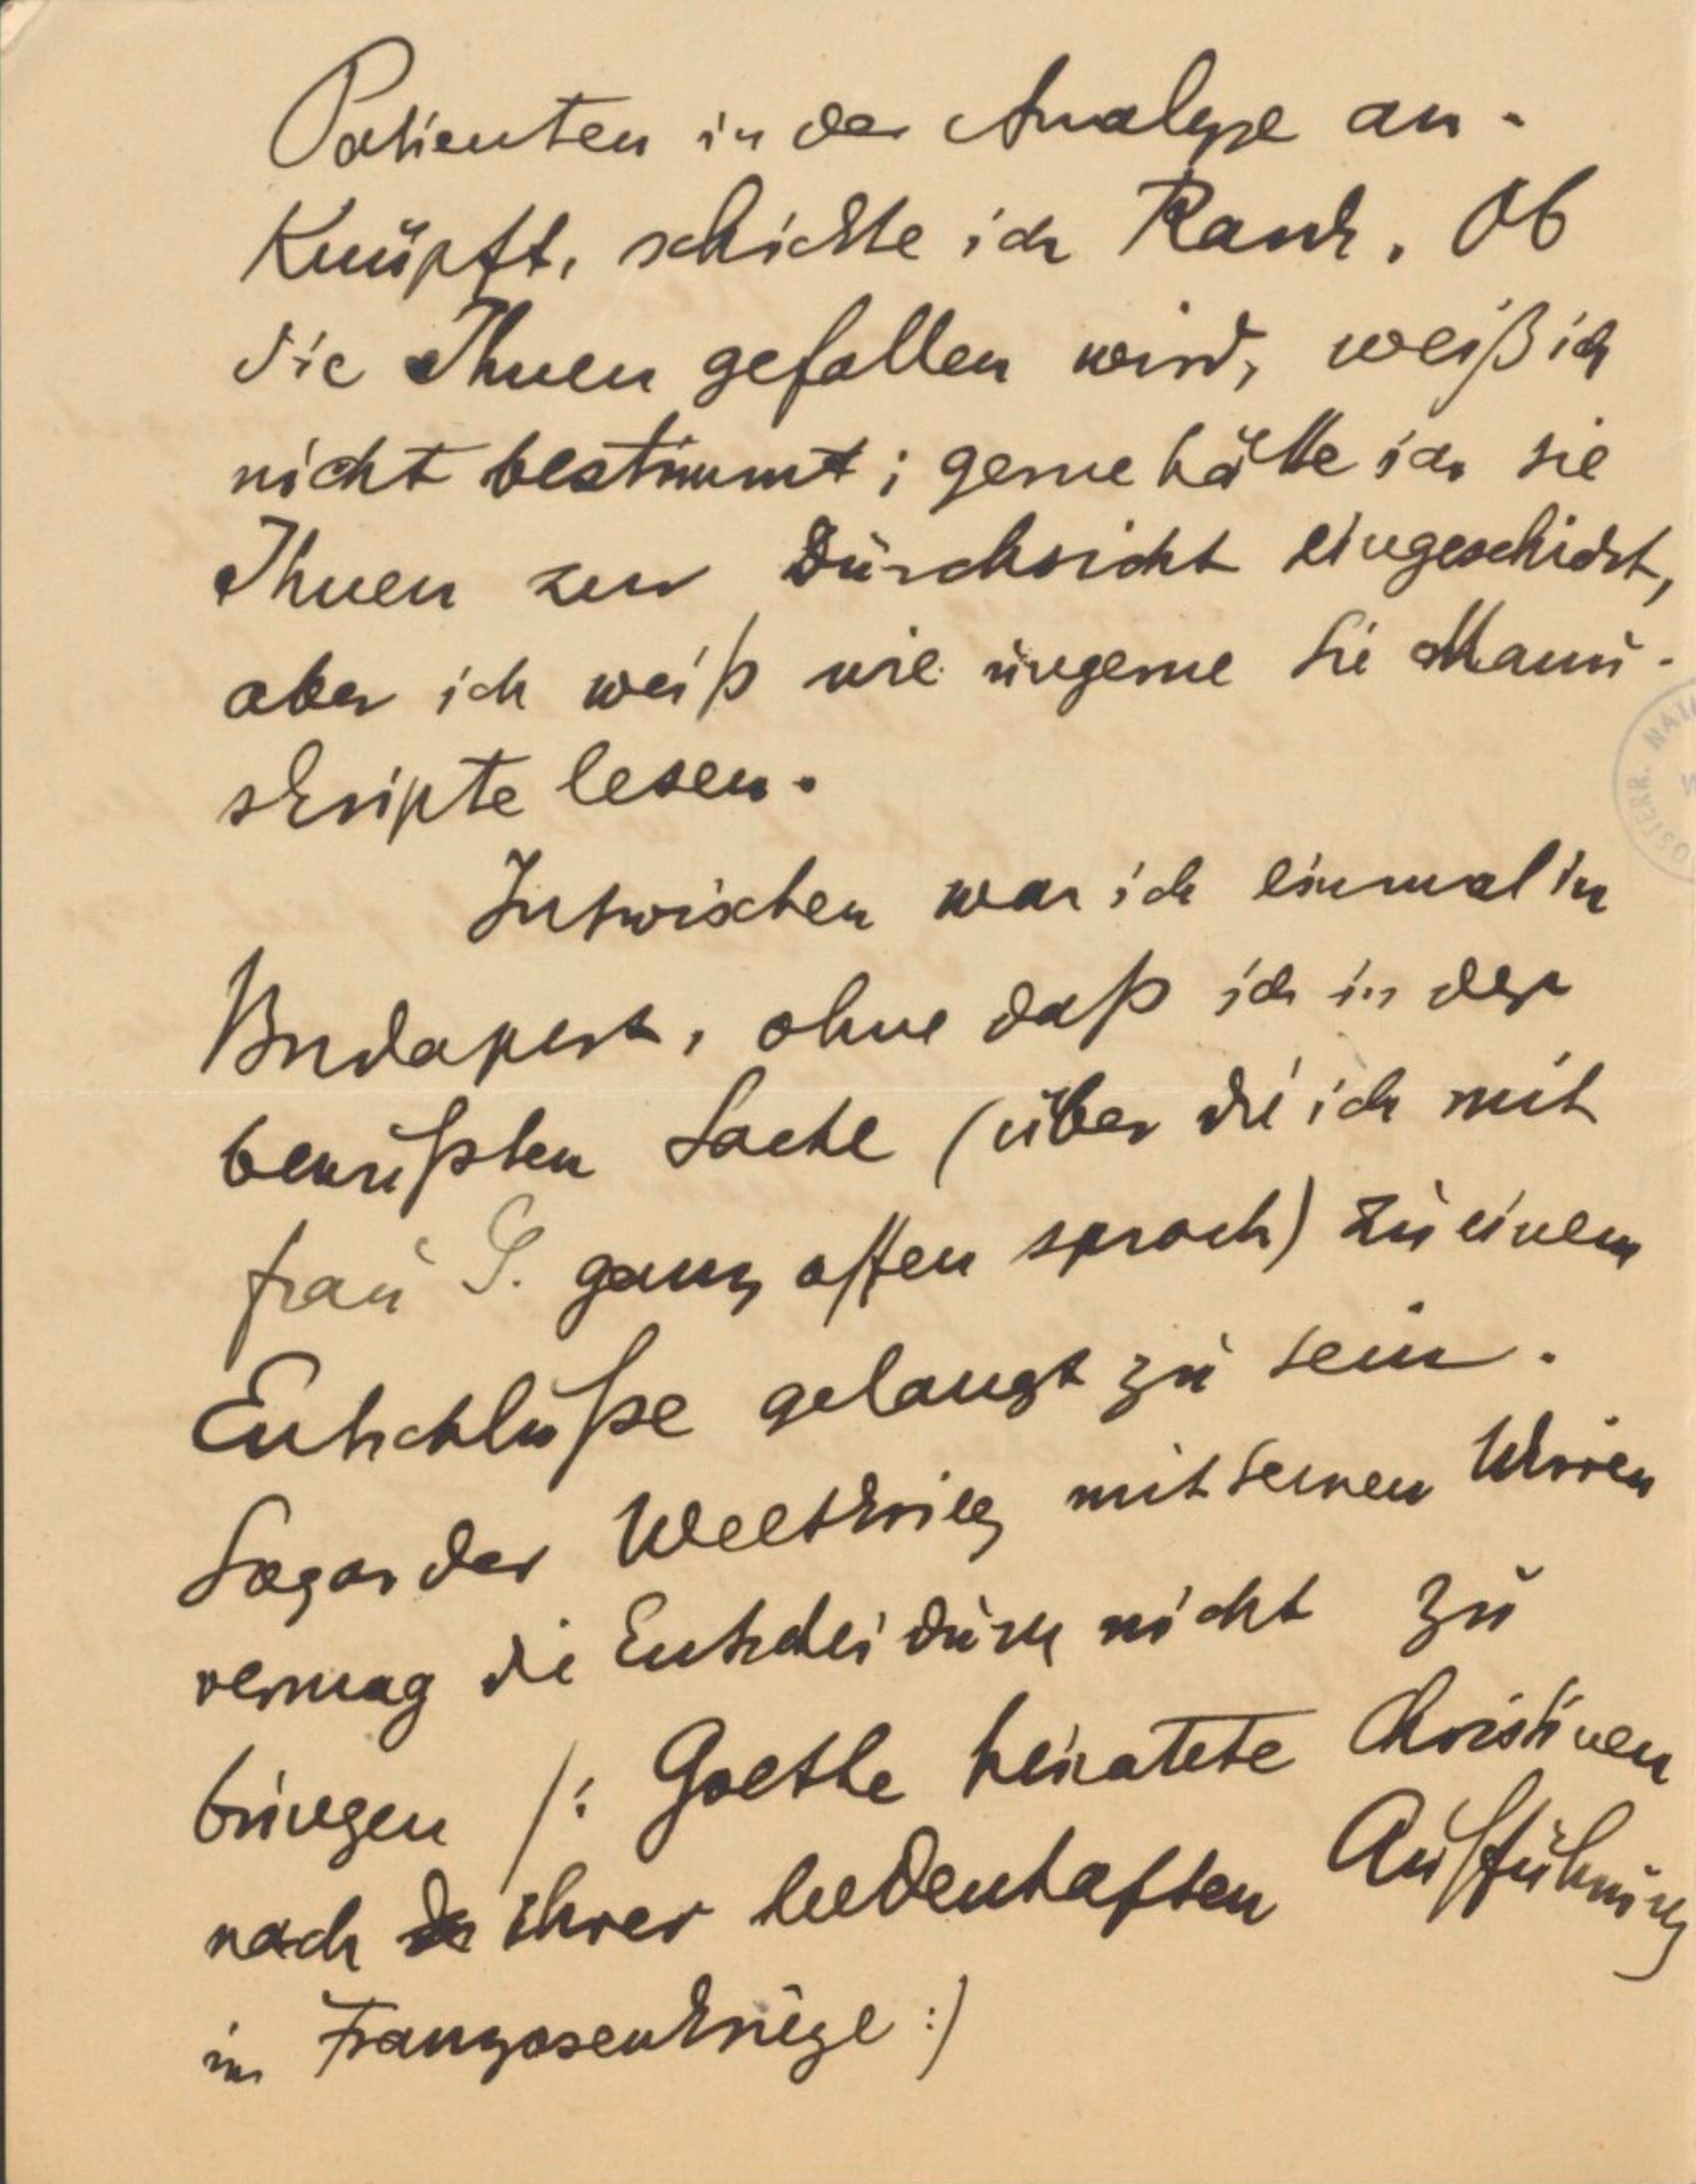 Patienten in der Analyse an-
knüpft, schickte ich Rank. Ob
sie Ihnen gefallen wird, weiß ich
nicht bestimmt; gerne hätte ich sie
Ihnen zur Durchsicht eingeschickt,
aber ich weiß wie ungerne Sie Manu-
skripte lesen.
Inzwischen war ich einmal in
Budapest, ohne daß ich in der
bewußten Sache (über die ich mit
Frau G. ganz offen sprach) zu einem
Entschluße gelangt zu sein.
Sogar der Weltkrieg mit seinen Wirren
vermag die Entscheidung nicht zu
bringen /: Goethe heiratete Christinen
nach ihrer heldenhaften Aufführung
im Franzosenkriege :/
ÖSTERR. NAT